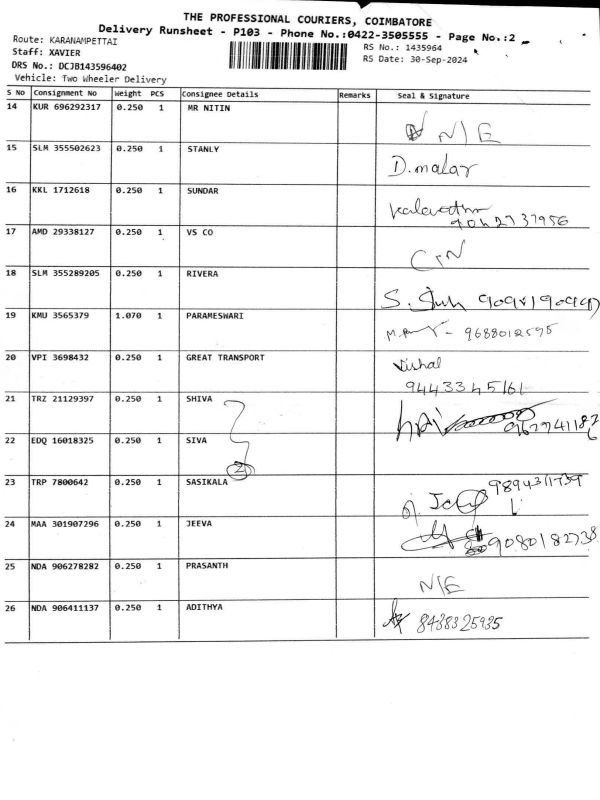 THE PROFESSIONAL COURIERS, COIMBATORE
Delivery Runsheet - P103 - Phone No.:0422-3505555 - Page No.:2
Route: KARANAMPETTAI
RS No.: 1435964
Staff: XAVIER
RS Date: 30-Sep-2024
DRS No.: DCJB143596402
Vehicle: Two Wheeler Delivery
S No Consignment No Weight PCS Consignee Details Remarks Seal & Signature
14 KUR 696292317 0.250 1 MR NITIN
N/E
15 SLM 355502623 0.250 1 STANLY
D.malar
16 KKL 1712618 0.250 1 SUNDAR
17 AMD 29338127 0.250 1 VS CO
18 SLM 355289205 0.250 1 RIVERA
S.
19 KMU 3565379 1.070 1 PARAMESWARI
9688012595
20 VPI 3698432 0.250 1 GREAT TRANSPORT
Vishal
9443345161
21 TRZ 21129397 0.250 1 SHIVA
22 EDQ 16018325 0.250 1 SIVA
2
23 TRP 7800642 0.250 1 SASIKALA
24 MAA 301907296 0.250 1 JEEVA
9080182738
25 NDA 906278282 0.250 1 PRASANTH
N/E
26 NDA 906411137 0.250 1 ADITHYA
8438325935